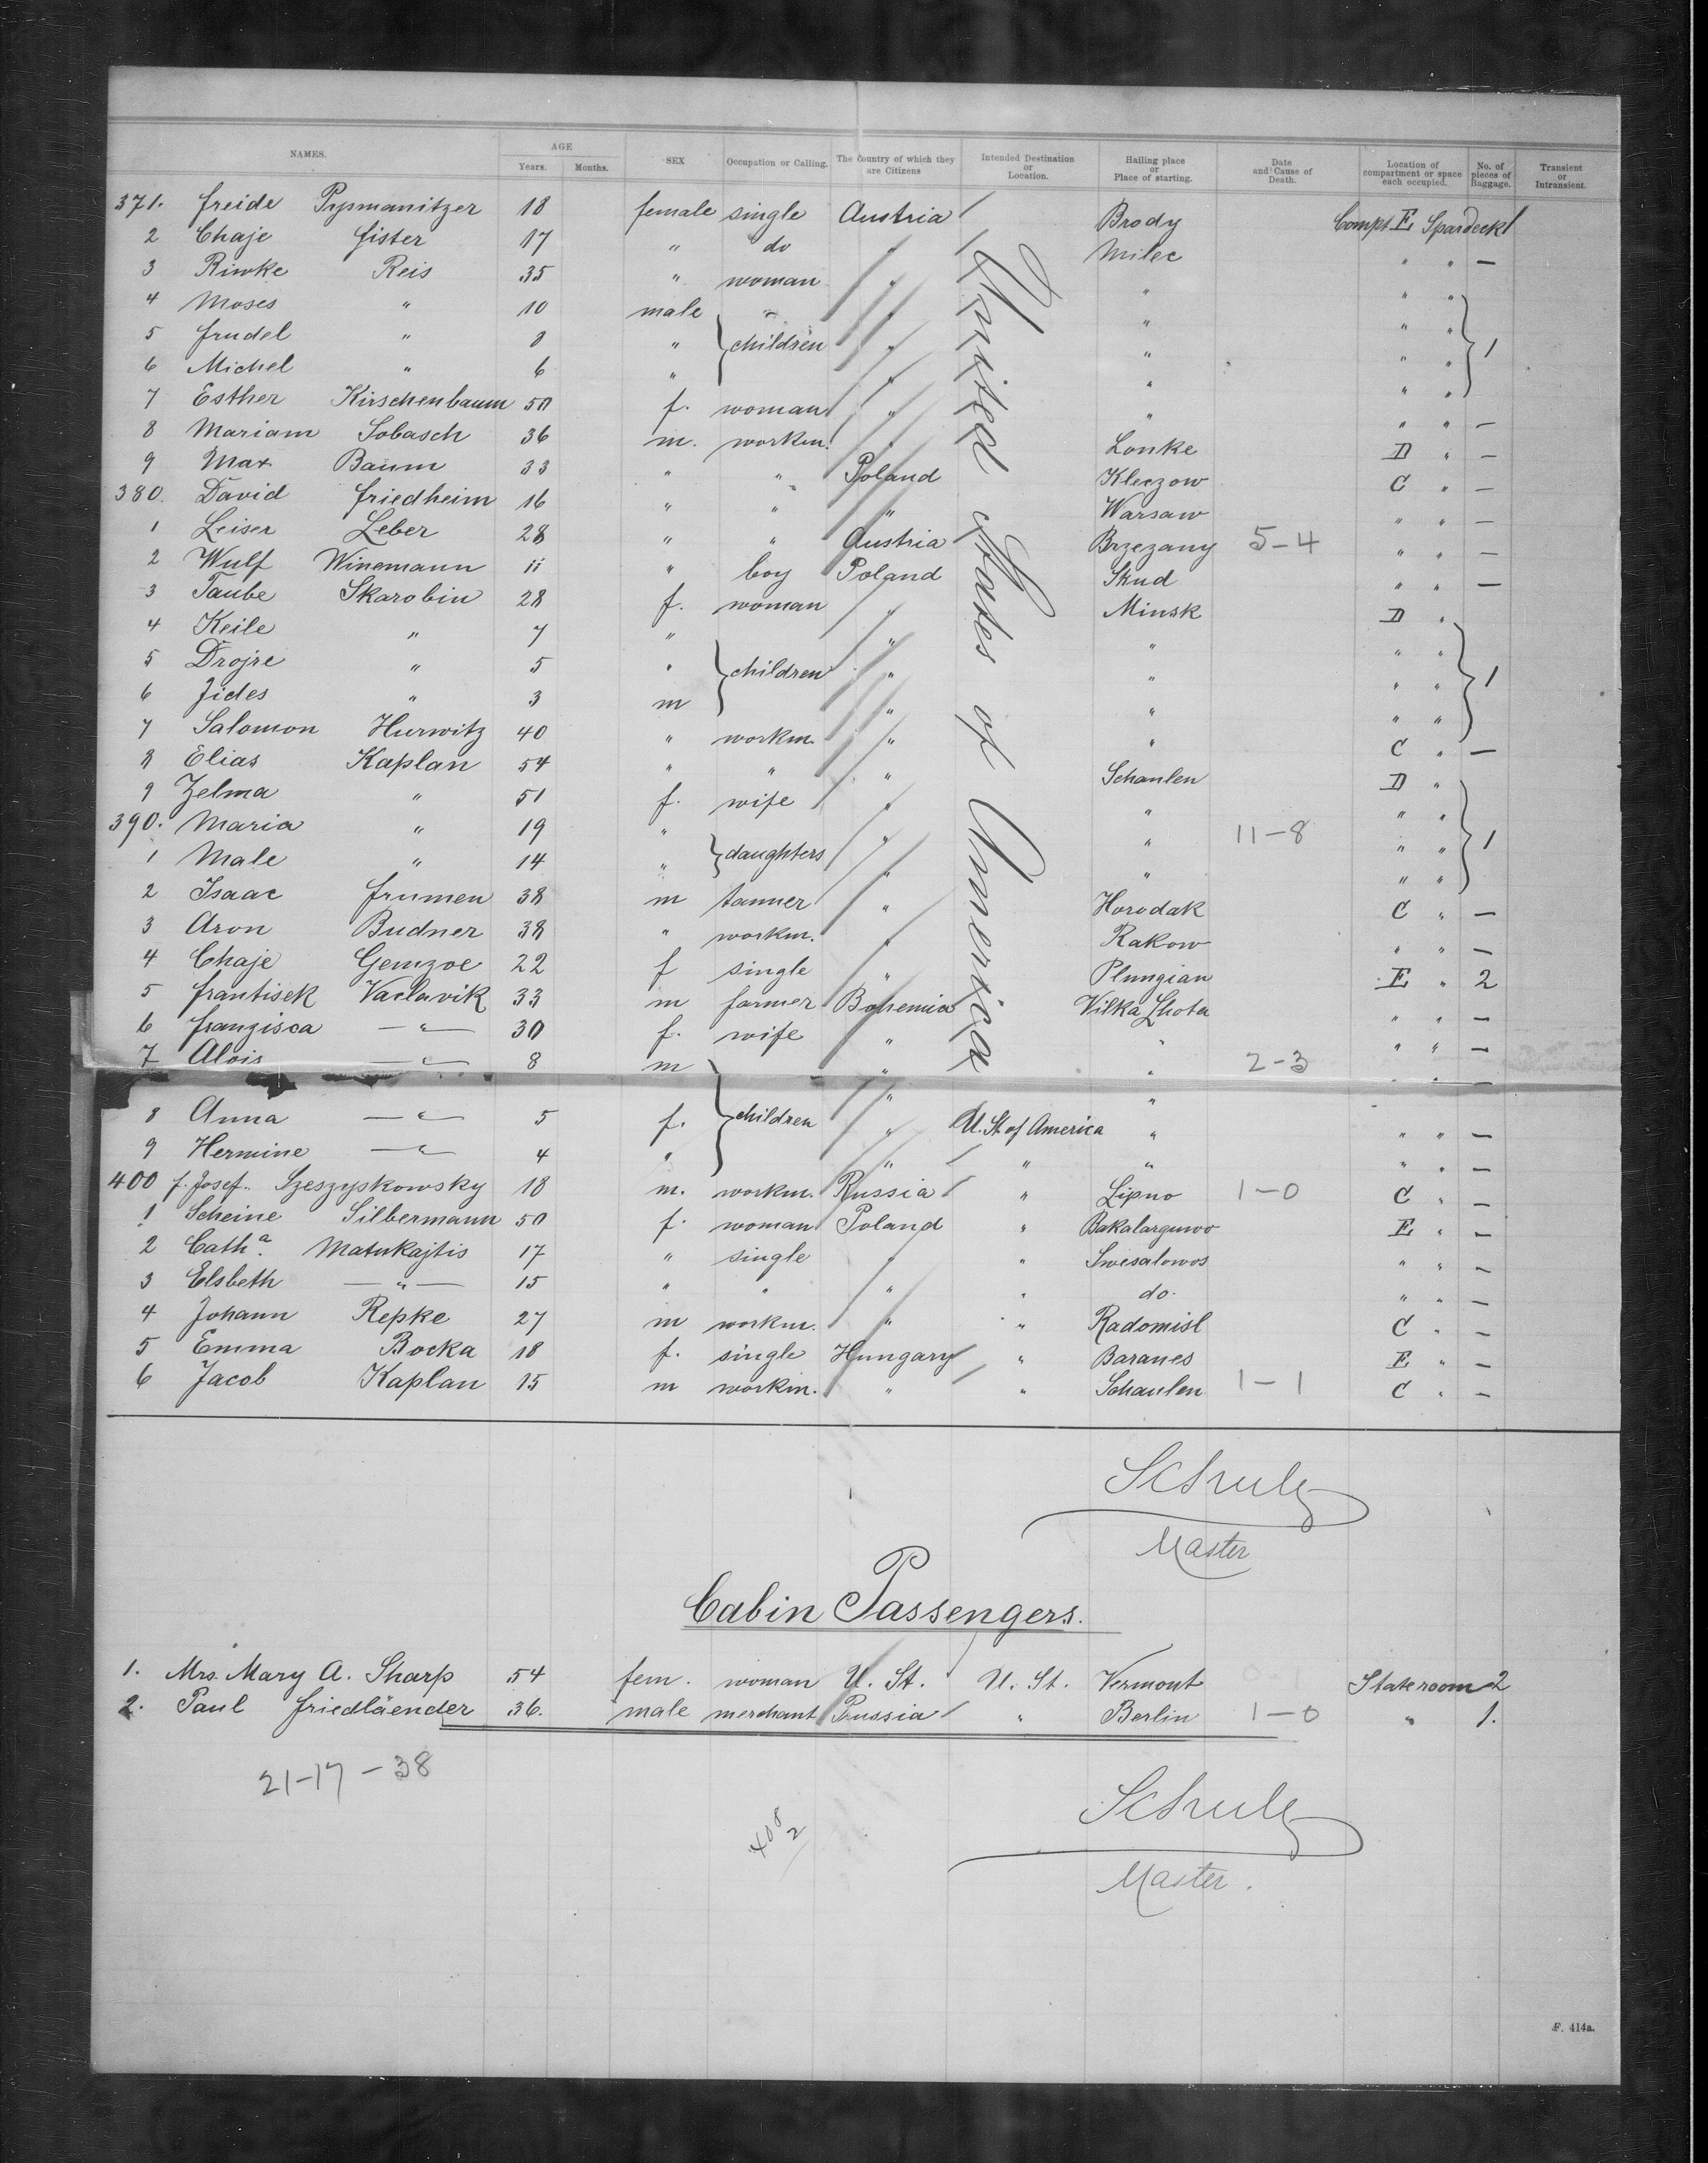 NAMES. AGE Years. Months. SEX Occupation or Calling. The Country of which they are Citizens Intended Destination or Location. Hailing place or Place of starting. Date and Cause of Death. Location of compartment or space each occupied. No. of pieces of Baggage. Transient or Intransient.
371. Freide Pypmanitzer 18 female single Austria / Brody Compt E Spardeck 1
2 Chaje Fister 17 " do " / Milec " " —
3 Riwke Reis 35 " woman " " " "
4 Moses " 10 male " " " " "
5 Frudel " 8 " } children " " " " } 1
6 Michel " 6 " " " " "
7 Esther Kirschenbaum 50 f. woman " " " " —
8 Mariam Sobasch 36 m. workm. " Lonke D " —
9 Max Baum 33 " " Poland Kleczow C " —
380. David Friedheim 16 " " " Warsaw " " —
1 Leiser Leber 28 " " Austria Brzezany 5-4 " " —
2 Wulf Winemann 11 " boy Poland Skud " " —
3 Taube Skarobin 28 f. woman " Minsk D "
4 Keile " 7 " " " " "
5 Drojre " 5 " } children " " " " } 1
6 Jides " 3 m " " " "
7 Salomon Hurwitz 40 " workm. " " C " —
8 Elias Kaplan 54 " " " Schaulen D "
9 Zelma " 51 f. wife " " " "
390. Maria " 19 " } daughters " " 11-8 " " } 1
1 Male " 14 " " " " "
2 Isaac Frumen 38 m tanner " Horodak C " —
3 Aron Budner 38 " workm. " Rakow " " —
4 Chaje Gemzoe 22 f single " Plungian E " 2
5 Frantisek Vaclavik 33 m farmer Bohemia Vilka Lhota " " —
6 Franzisca — " — 30 f. wife " " " " —
7 Alois — " — 8 m " " 2-3 " " —
United States of America
8 Anna — " — 5 f. } children " U. St. of America " " " —
9 Hermine — " — 4 " " " " " " —
400 f. Josef Szeszyskowsky 18 m. workm. Russia / " Lipno 1-0 C " —
1 Scheine Silbermann 50 f. woman Poland " Bakalarguwo E " —
2 Cath.a Matukajtis 17 " single " " Swesalowos " " —
3 Elsbeth — " — 15 " " " " do. " " —
4 Johann Repke 27 m workm. " " Radomisl C " —
5 Emma Bocka 18 f. single Hungary / " Baranes E " —
6 Jacob Kaplan 15 m workm. " / " Schaulen 1-1 C " —
Schulz
Master
Cabin Passengers.
1. Mrs. Mary A. Sharp 54 fem. woman U. St. / U. St. Vermont Stateroom 2
2. Paul Friedläender 36. male merchant Prussia / " Berlin 1-0 " 1.
21-17-38
408
2
Schulz
Master.
F. 414a.